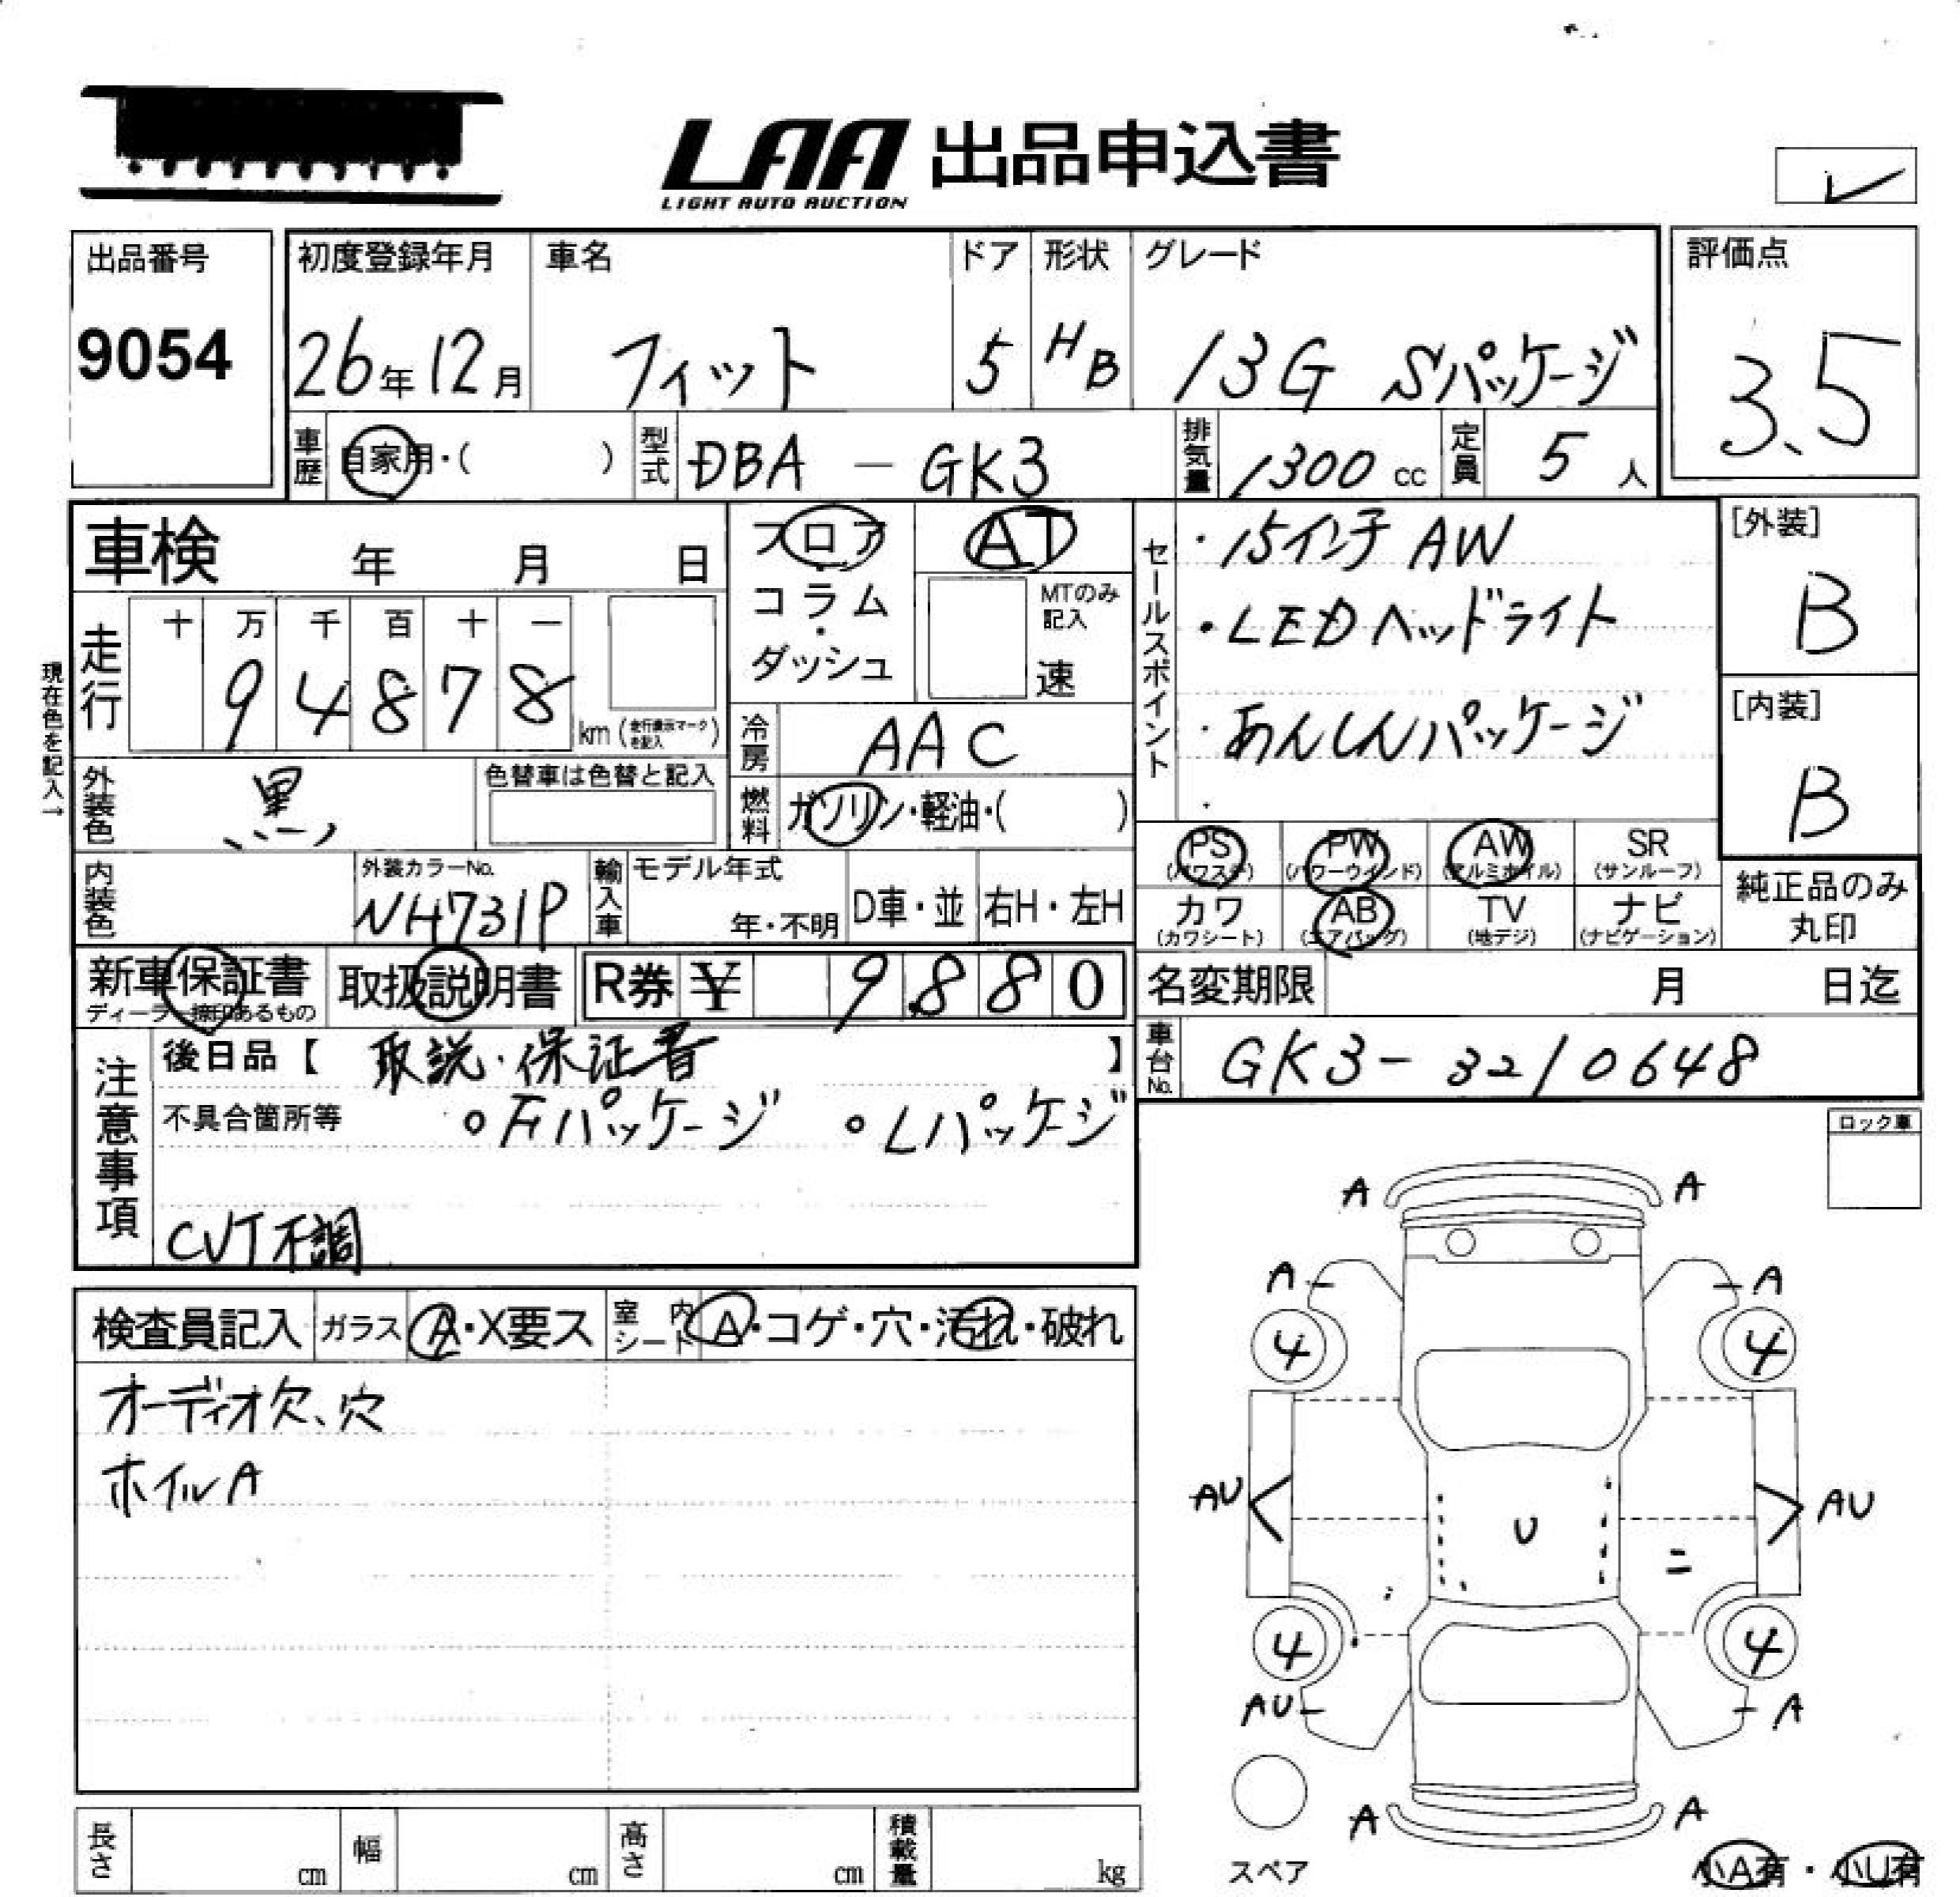 LAA 出品申込書
LIGHT AUTO AUCTION
出品番号
9054
初度登録年月
26年12月
車名
フィット
ドア
5
形状
HB
グレード
13G Sパッケージ
評価点
3.5
車歴
自家用・( )
型式
DBA - GK3
排気量
1300 cc
定員
5 人
車検 年 月 日
フロア・コラム・ダッシュ
AT
MTのみ記入
速
セールスポイント
・15インチ AW
・LEDヘッドライト
・あんしんパッケージ
・
[外装]
B
[内装]
B
現在色を記入→
走行
十 万 千 百 十 一
9 4 8 7 8
km (走行表示マークを記入)
冷房
AAC
外装色
黒
色替車は色替と記入
燃料
ガソリン・軽油・( )
PS (パワステ)
PW (パワーウインド)
AW (アルミホイル)
SR (サンルーフ)
カワ (カワシート)
AB (エアバッグ)
TV (地デジ)
ナビ (ナビゲーション)
純正品のみ丸印
内装色
外装カラーNo.
NH731P
輸入車
モデル年式
年・不明
D車・並
右H・左H
新車保証書
ディーラー捺印あるもの
取扱説明書
R券 ¥ 9880
名変期限 月 日迄
車台No.
GK3-3210648
注意事項
後日品【 取説・保証書 】
不具合箇所等 ○Fパッケージ ○Lパッケージ
CVT不調
ロック車
検査員記入
ガラス
A・X要ス
室内シート
A・コゲ・穴・汚れ・破れ
オーディオ欠、穴
ホイルA
A A
A A
4 4
AU U AU
4 4
AU A
A A
スペア
小A有・小U有
長さ cm
幅 cm
高さ cm
積載量 kg